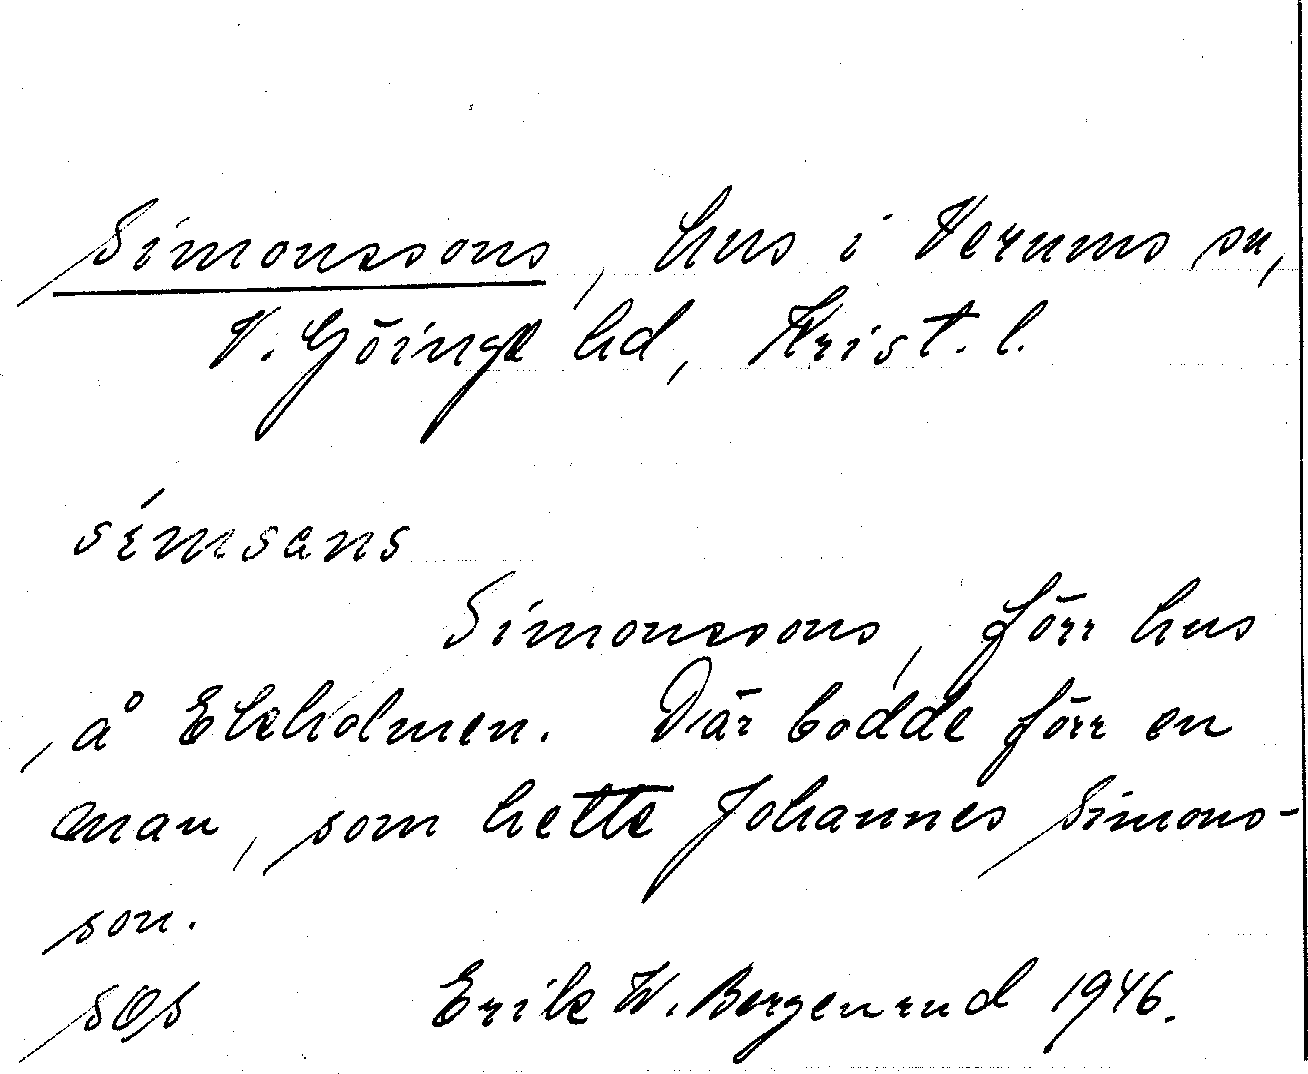 Simonssons, hus i Verums sn,
V. Göinge hd, Krist. l.
símsans
Simonssons, förr hus
å Ekeholmen. Där bodde förr en
man, som hette Johannes Simons-
son.
SOS Erik W. Bergenrud 1946.